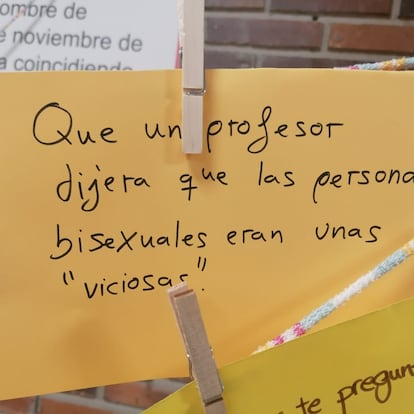 ombre de
e noviembre de
a coincidiendo
Que un profesor
dijera que las persona
bisexuales eran unas
"viciosas".
te pregun